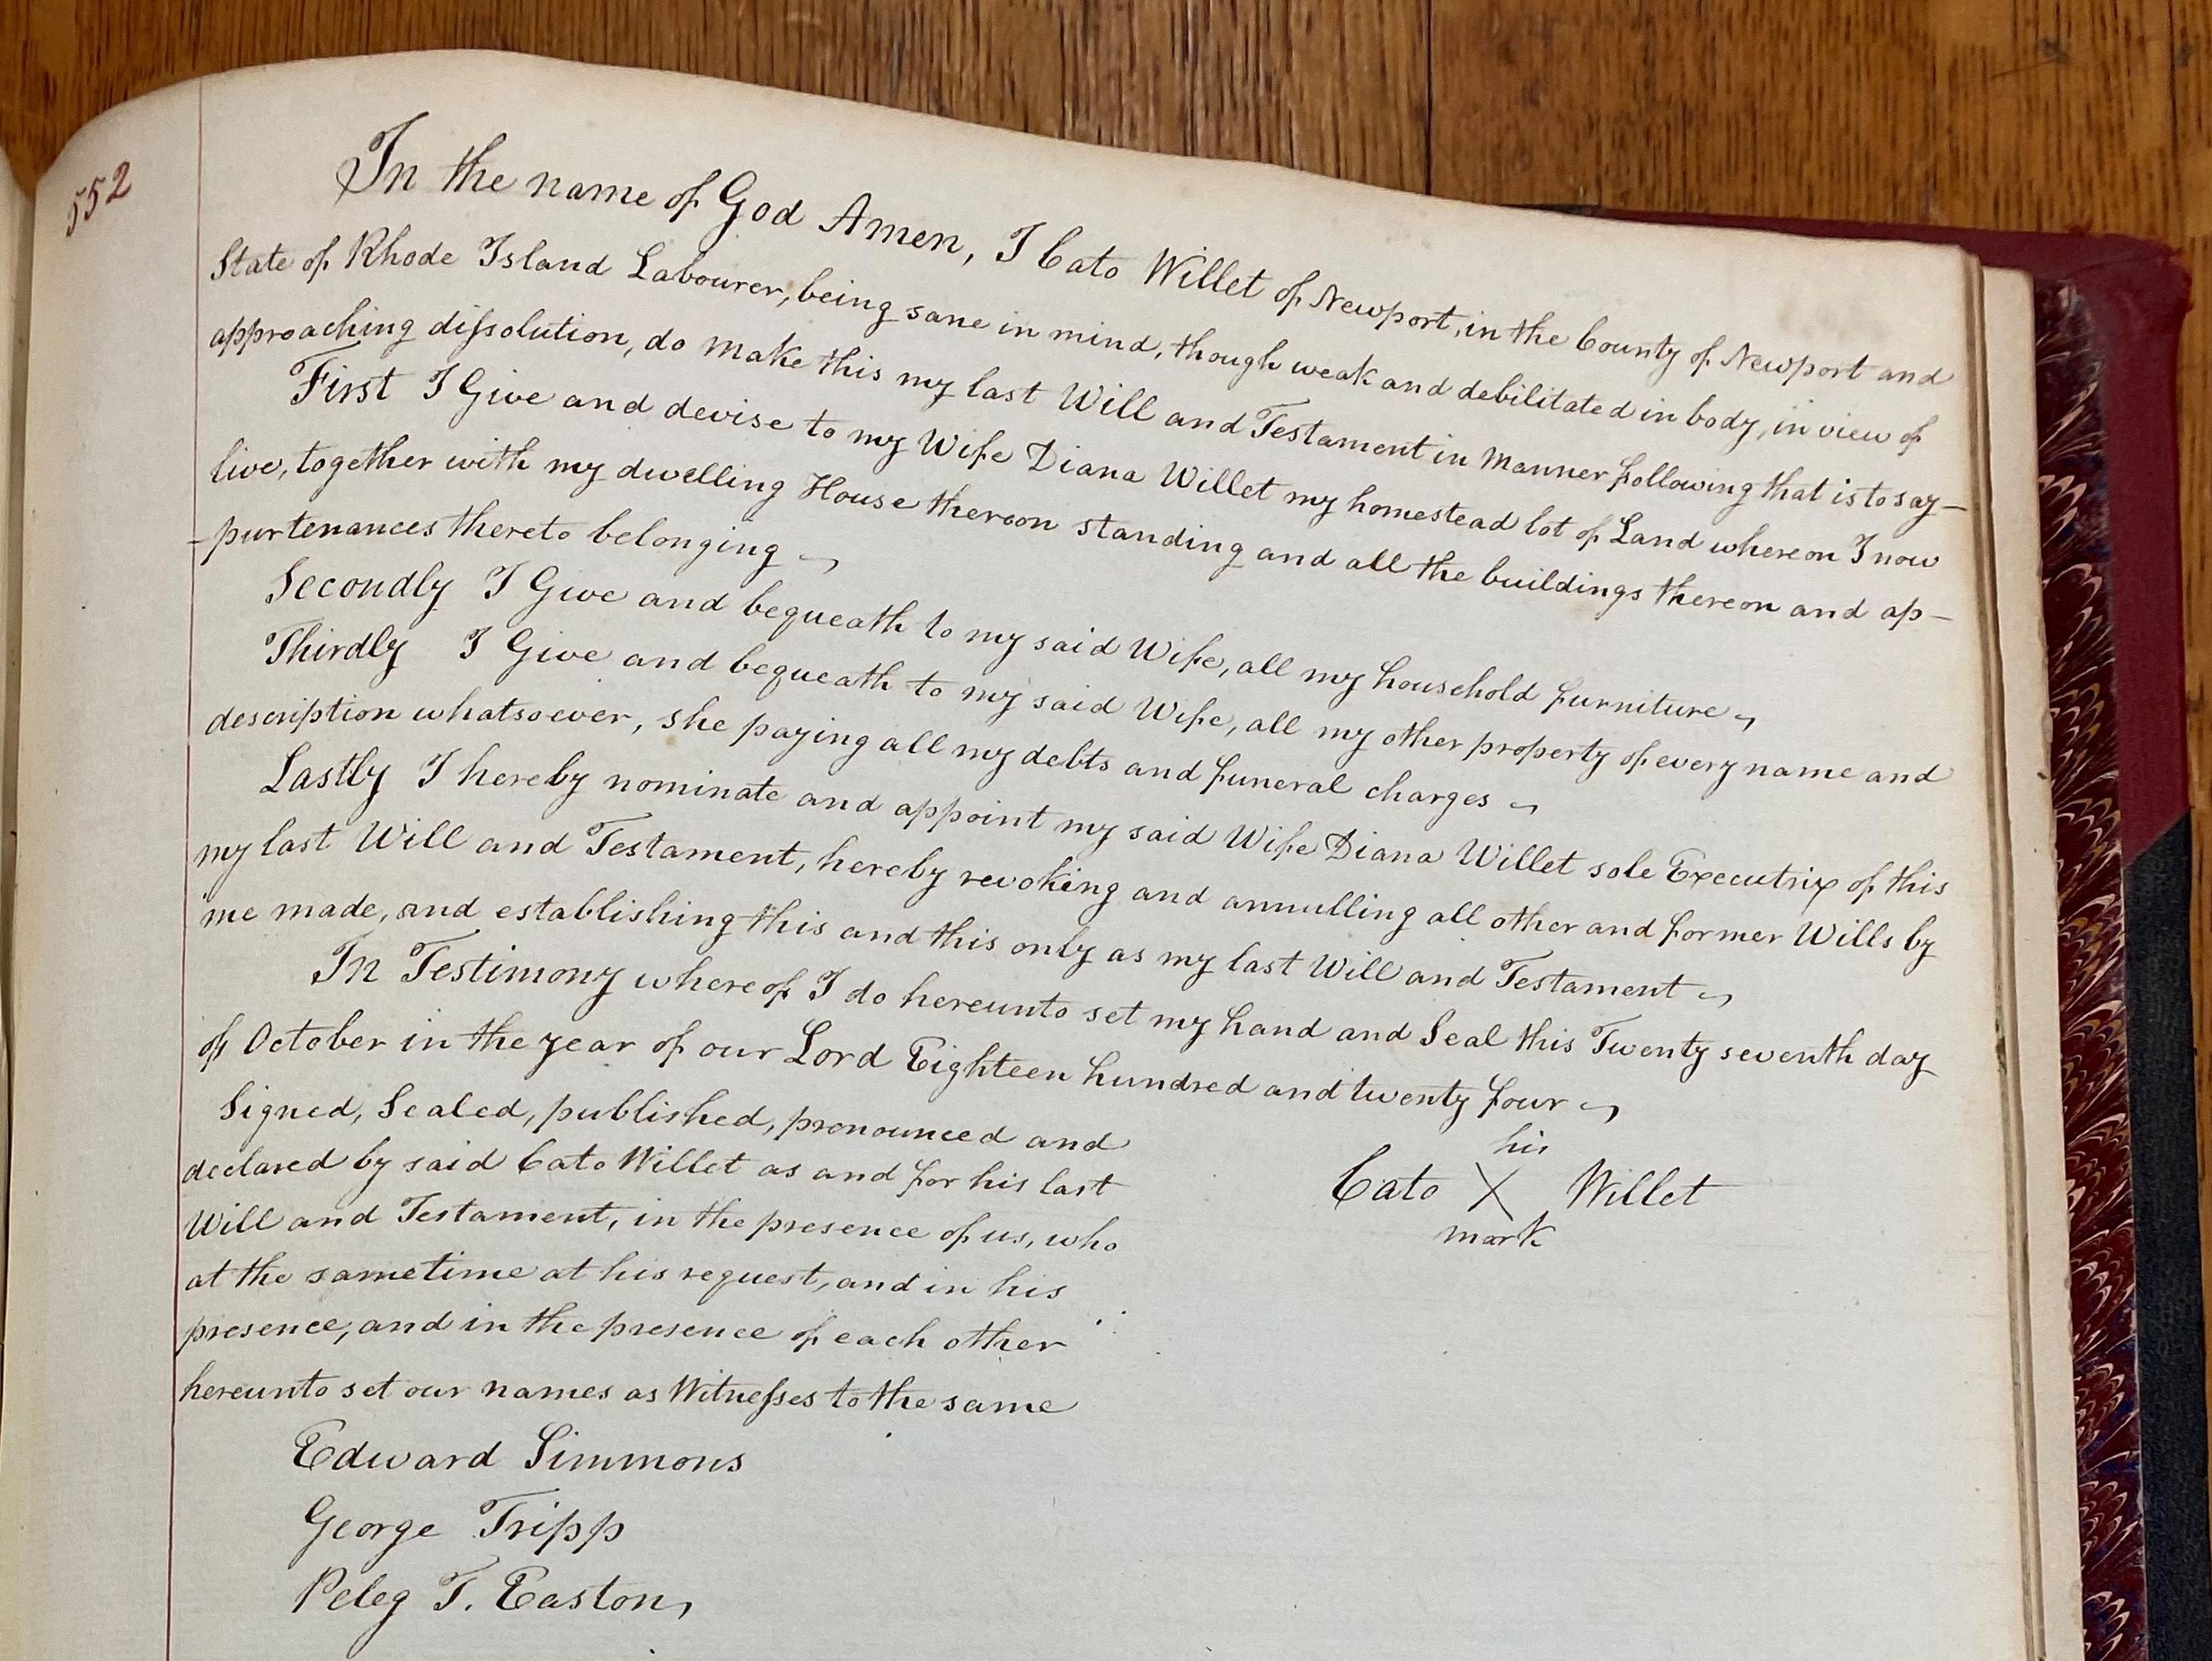 552
In the name of God Amen, I Cato Willet of Newport, in the County of Newport and
State of Rhode Island Labourer, being sane in mind, though weak and debilitated in body, in view of
approaching diſsolution, do make this my last Will and Testament in manner following that is to say—
First I Give and devise to my Wife Diana Willet my homestead lot of Land whereon I now
live, together with my dwelling House thereon standing and all the buildings thereon and ap-
-purtenances thereto belonging
Secondly I Give and bequeath to my said Wife, all my household furniture
Thirdly I Give and bequeath to my said Wife, all my other property of every name and
description whatsoever, she paying all my debts and funeral charges
Lastly I hereby nominate and appoint my said Wife Diana Willet sole Executrix of this
my last Will and Testament, hereby revoking and annulling all other and former Wills by
me made, and establishing this and this only as my last Will and Testament
In Testimony whereof I do hereunto set my hand and Seal this Twenty seventh day
of October in the year of our Lord Eighteen hundred and twenty four
Signed, Sealed, published, pronounced and
declared by said Cato Willet as and for his last
Will and Testament, in the presence of us, who
at the sametime at his request, and in his
presence, and in the presence of each other
hereunto set our names as Witneſses to the same
his
Cato X Willet
mark
Edward Simmons
George Tripp
Peleg T. Easton,